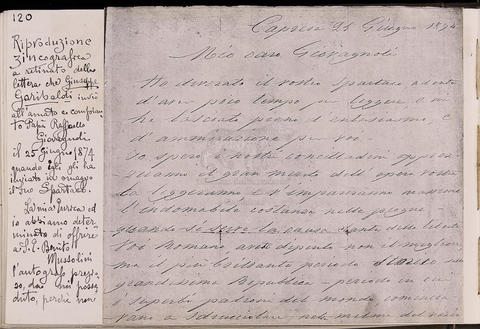 120
Riproduzione
zincografica
a retinato della
lettera che Giuseppe
Garibaldi inviò
all'amato e compianto
Papà Raffaello
Giovagnoli
il 25 Giugno 1874
quando egli gli ha
inviato in omaggio
il suo Spartaco.
La mia
ed io abbiamo deter
minato di offrire
a S. E. Benito
Mussolini
l'autografo prezio
so, da noi posse
duto, perché non
Caprera 25 Giugno 1874
Mio caro Giovagnoli
Ho divorato il vostro Spartaco ad onta
d'aver poco tempo per leggere e m'
ha lasciato pieno d'entusiasmo, e
d'ammirazione per voi.
Io spero i nostri concittadini apprez
zeranno il gran merito dell'opera vostra
la leggeranno, e v'impareranno massime
l'indomabile costanza nelle pugne
quando si serve la causa santa della libertà
Voi Romano, avete dipinto non il migliore,
ma il più brillante periodo storico della
grandissima Repubblica - periodo in cui
i superbi padroni del mondo comincia
vano a sdrucciolare nelle